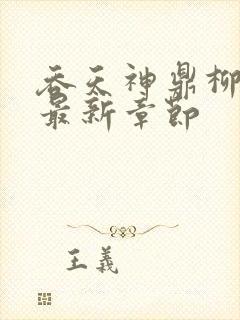 吞天神鼎柳
最新章节
王羲